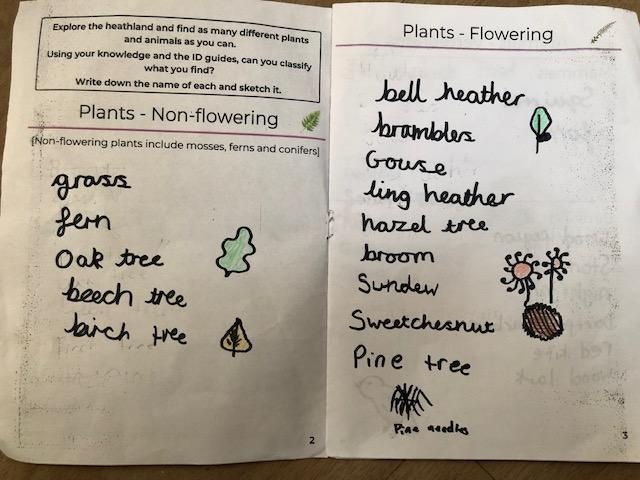 Explore the heathland and find as many different plants
and animals as you can.
Using your knowledge and the ID guides, can you classify
what you find?
Write down the name of each and sketch it.
Plants - Non-flowering
[Non-flowering plants include mosses, ferns and conifers]
grass
fern
Oak tree
beech tree
birch tree
2
Plants - Flowering
bell heather
brambles
Gouse
ling heather
hazel tree
broom
Sundew
Sweetchesnut
Pine tree
Pine needles
3